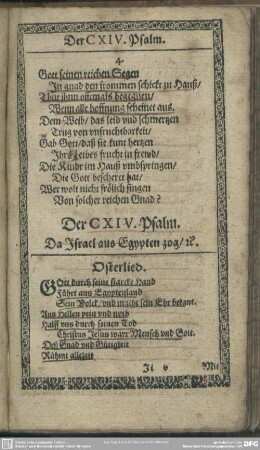 Der CXIV. Psalm.
4.
Gott seinen reichen Segen
In gnad den frommen schickt zu Hauß/
Thut jhnn oftmals begegnen/
Wenn alle hoffnung scheinet aus.
Dem Weib/ das leid vnd schmertzen
Trug von vnfruchtbarkeit/
Gab Gott/ daß sie kunt hertzen
Ihrs Leibes frucht in frewd/
Die Kindr im Hauß vmbspringen/
Die Gott bescheret hat/
Wer wolt nicht frölich singen
Von solcher reichen Gnad?
Der CXIV. Psalm.
Da Israel aus Egypten zog/ ꝛc.
Osterlied.
GOtt durch seine starcke Hand
Führt aus Egyptenland
Sein Volck/ vnd macht sein Ehr bekant.
Aus Hellen pein vnd noth
Halff vns durch seinen Tod
Christus Jesus warr Mensch vnd Gott.
Deß Gnad vnd Gütigkeit
Rühmt allezeit
Ii v
Mit